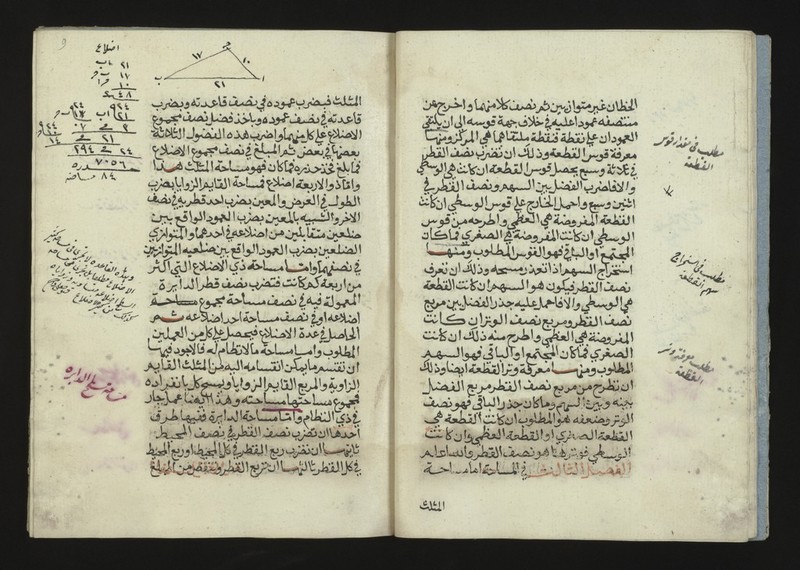 الخطان غير متوازيين ثم نصف كلا منهما واخرج من
منتصفه عمودا عليه في خلاف جهة قوسه الى ان يلتقي
العمودان على نقطة فنقطة ملتقاهما هي المركز ومنها
معرفة قوس القطعة وذلك ان تضرب نصف القطر
في ثلاثة وسبع يحصل قوس القطعة ان كانت هي الوسطى
والا فاضرب الفضل بين السهم ونصف القطر في
اثنين وسبع واحمل الخارج على قوس الوسطى ان كانت
القطعة المفروضة هي العظمى واطرحه من قوس
الوسطى ان كانت المفروضة هي الصغرى فما كان
المجتمع او الباقي فهو القوس المطلوب ومنها
استخراج السهم اذا تعذر مسحه وذلك ان تعرف
نصف القطر فيكون هو السهم ان كانت القطعة
هي الوسطى والا فاحمل عليه جذر الفضل بين مربع
نصف القطر ومربع نصف الوتر ان كانت
المفروضة هي العظمى واطرح منه ذلك ان كانت
الصغرى فما كان المجتمع او الباقي فهو السهم
المطلوب ومنها معرفة وتر القطعة ايضا وذلك
ان تطرح من مربع نصف القطر مربع الفضل
بينه وبين السهم وما كان جذر الباقي فهو نصف
الوتر وضعفه هو المطلوب ان كانت القطعة هي
القطعة الصغرى او القطعة العظمى وان كانت
الوسطى فوترها هو نصف القطر والله اعلم
الفصل الثالث في المساحة اما مساحة
المثلث
مطلب في مقدار قوس
القطعة
مطلب في استخراج
سهم القطعة
مطلب معرفة وتر
القطعة
اضلاع
٢١
١٧
١٠
٤٨
١٧
١٠
٢١
المثلث فبضرب عموده في نصف قاعدته وبضرب
قاعدته في نصف عموده وباخذ فضل نصف مجموع
الاضلاع على كل منهما واضرب هذه الفضول الثلاثة
بعضها في بعض ثم المبلغ في نصف مجموع الاضلاع
فما بلغ تخذ جذره فما كان فهو مساحة المثلث هذا
واما ذو الاربعة اضلاع فمساحة القايم الزوايا بضرب
الطول في العرض والمعين بضرب احد قطريه في نصف
الاخر والشبيه بالمعين بضرب العمود الواقع بين
ضلعين متقابلين من اضلاعه في احدهما والمتوازي
الضلعين بضرب العمود الواقع بين ضلعيه المتوازيين
في نصفهما واما مساحة ذي الاضلاع التي اكثر
من اربعة كم كانت فتضرب نصف قطر الدايرة
المعمولة فيه في نصف مساحة مجموع مساحة
اضلاعه او في نصف مساحة احد اضلاعه ثم
الحاصل في عدة الاضلاع فيحصل على كل من العملين
المطلوب واما مساحة مالا نظام له فالاجود فيها
ان تقسم ما يمكن انقسامه اليه من المثلث القايم
الزاوية والمربع القايم الزوايا ويمسح كل بانفراده
فمجموع مساحتها مساحته وهذا ايضا عمل جار
في ذي النظام واما مساحة الدايرة ففيها طرق
احدها ان تضرب نصف القطر في نصف المحيط
ثانيها ان تضرب ربع القطر في كل المحيط او ربع المحيط
في كل القطر ثالثها ان تربع القطر وتنقص من المبلغ
٧٠٥٦
٨٤
مساحة سطح الدايره